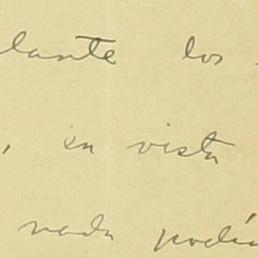 lante los
, en vista
nada podía